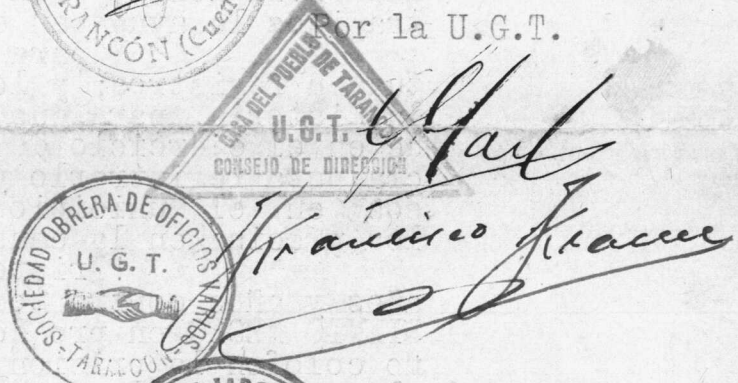 RANCÓN (Cuen
Por la U.G.T.
CASA DEL PUEBLO DE TARANCÓN
U.G.T.
CONSEJO DE DIRECCION
Francisco
SOCIEDAD OBRERA DE OFICIOS VARIOS
U. G. T.
TARANCON